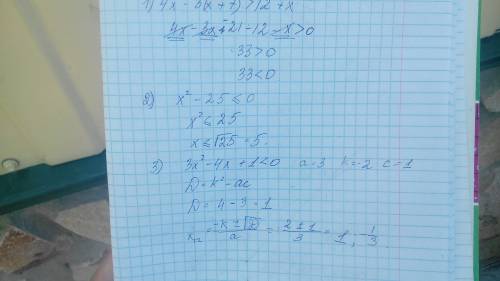 1) 4x - 3(x + 7) > 12 + x
4x - 3x - 21 - 12 - x > 0
-33 > 0
33 < 0
2) x² - 25 ≤ 0
x² ≤ 25
x ≤ √25 = 5.
3) 3x² - 4x + 1 < 0 a=3 k=-2 c=1
D = k² - ac
D = 4 - 3 = 1
x₁,₂ = (-k ± √D)/a = (2 ± 1)/3 = 1; 1/3